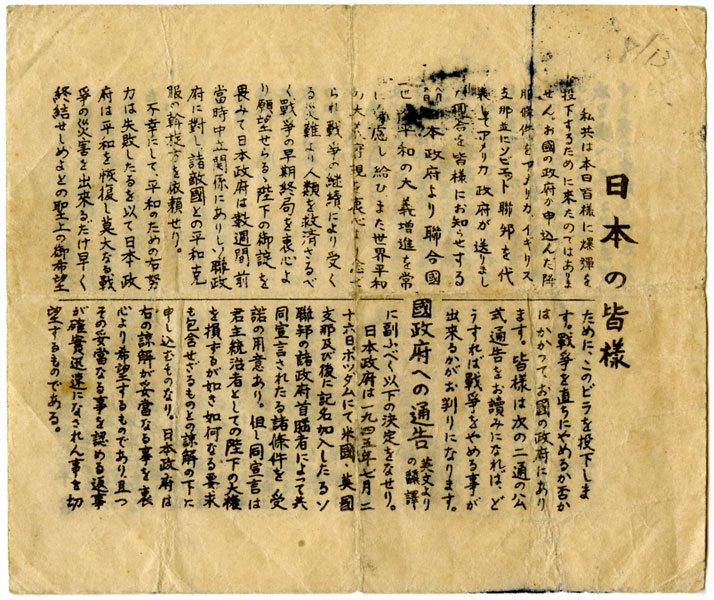 日本の皆様
私共は本日皆様に爆彈を
投下するために来たのではありま
せん。お國の政府が申込んだ降
服條件をアメリカ、イギリス、
支那並にソビエット聯邦を代
表してアメリカ政府が送りまし
回答を皆様にお知らせする
ために、このビラを投下しま
す。戰爭を直ちにやめるか否か
はかかってお國の政府にあり
ます。皆様は次の二通の公
式通告をお讀みになれば、ど
うすれば戰爭をやめる事が
出来るかがお判りになります。
日本政府より聯合國
國政府への通告 英文よりの飜譯
平和の大義増進を常
慮し給ひまた世界平和
の大義 現を衷心より念
られ戰爭の継續により受く
る災難より人類を救済さるべ
く戰爭の早期終局を衷心よ
り願望せらるる陛下の御諚を
畏みて日本政府は数週間前
當時中立関係にありしソ聯政
府に對し諸敵國との平和克
服の斡旋方を依頼せり。
不幸にして、平和のための右努
力は失敗したるを以て日本政
府は平和を恢復し莫大なる戰
爭の災害を出来るだけ早く
終結せしめよとの聖上の御希望
に副ふべく以下の決定をなせり。
日本政府は一九四五年七月二
十六日、ポツダムにて米國・英國
支那及び後に記名加入したるソ
聯邦の諸政府首脳者によって共
同宣言されたる諸條件を受
諾の用意あり。但し同宣言は
君主統治者としての陛下の大權
を損するが如き如何なる要求
も包含せざるものとの諒解の下に
申し込むものなり。日本政府は
右の諒解が妥當なる事を衷
心より希望するものであり、且つ
その妥當なる事を認める返事
が確實迅速になされん事を切
望するものである。
8/13